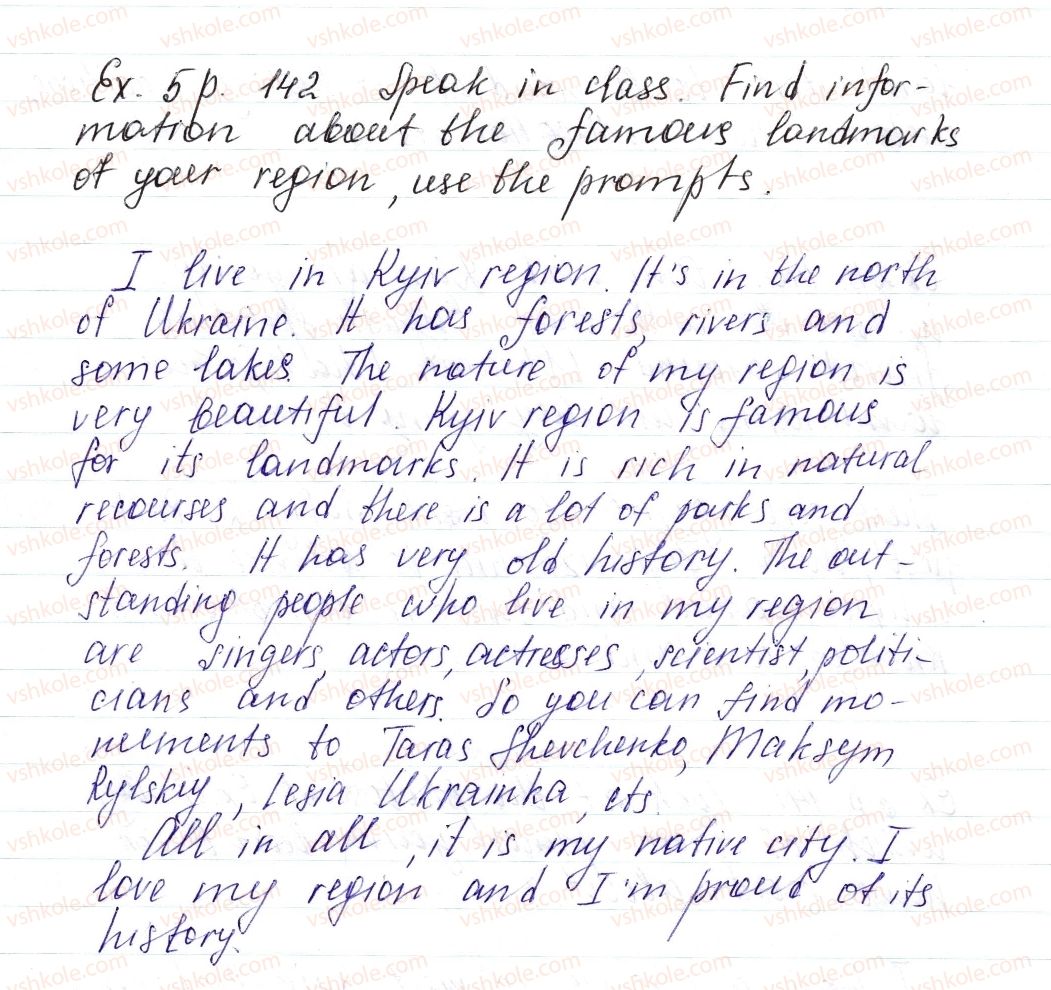 Ex. 5 p. 142 Speak in class. Find infor-
mation about the famous landmarks
of your region, use the prompts.
I live in Kyiv region. It's in the north
of Ukraine. It has forests, rivers and
some lakes. The nature of my region is
very beautiful. Kyiv region is famous
for its landmarks. It is rich in natural
recourses and there is a lot of parks and
forests. It has very old history. The out-
standing people who live in my region
are singers, actors, actresses, scientist, politi-
cians and others. So you can find mo-
numents to Taras Shevchenko, Maksym
Rylskiy, Lesia Ukrainka, cts.
All in all, it is my native city. I
love my region and I'm proud of its
history.
vshkole.com